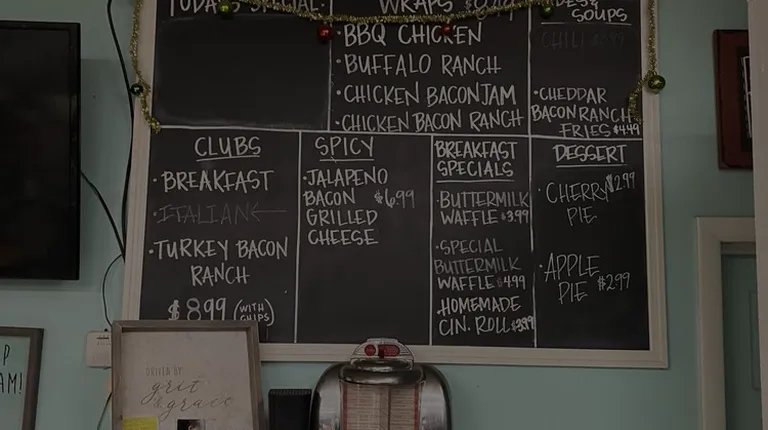 TODAY'S SPECIAL:
WRAPS
SOUPS
• BBQ CHICKEN
• BUFFALO RANCH
• CHICKEN BACON JAM
• CHICKEN BACON RANCH
CHILI
• CHEDDAR
BACON RANCH
FRIES $4.49
CLUBS
• BREAKFAST
• ITALIAN
• TURKEY BACON
RANCH
$8.99 (WITH
CHIPS)
SPICY
• JALAPENO
BACON $6.99
GRILLED
CHEESE
BREAKFAST
SPECIALS
• BUTTERMILK
WAFFLE $3.99
• SPECIAL
BUTTERMILK
WAFFLE $4.99
• HOMEMADE
CIN. ROLL $3.99
DESSERT
• CHERRY $2.99
PIE
• APPLE
PIE $2.99
DRIVEN BY
grit
& grace
P
AM!